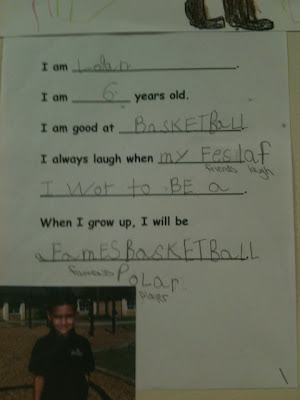 I am Lolan.
I am 6 years old.
I am good at BASKETBall
I always laugh when my FeslaF
friends laugh
I Wot to BE a.
When I grow up, I will be
a FamESBASKETBall
famous PoLar
player